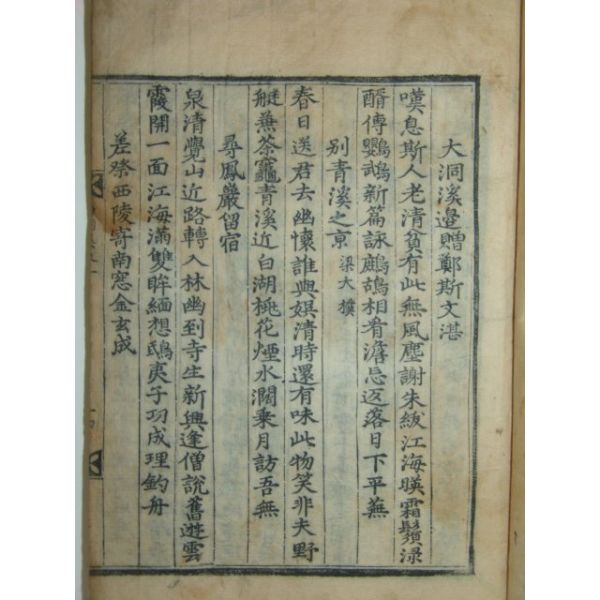 大洞溪邊贈鄭斯文湛
嘆息斯人老清貧有此無風塵謝朱紱江海暎霜鬚淥
醑傳鸚鵡新篇詠鷓鴣相看澹忘返落日下平蕪
別青溪之京 梁大樸
春日送君去幽懷誰與娯清時還有味此物笑非夫野
艇兼茶竈青溪近白湖桃花煙水濶乗月訪吾無
尋鳳巖留宿
泉清覺山近路轉入林幽到寺生新興逢僧說舊遊雲
霞開一面江海滿雙眸緬想鴟夷子功成理釣舟
差祭西陵寄南窓金玄成